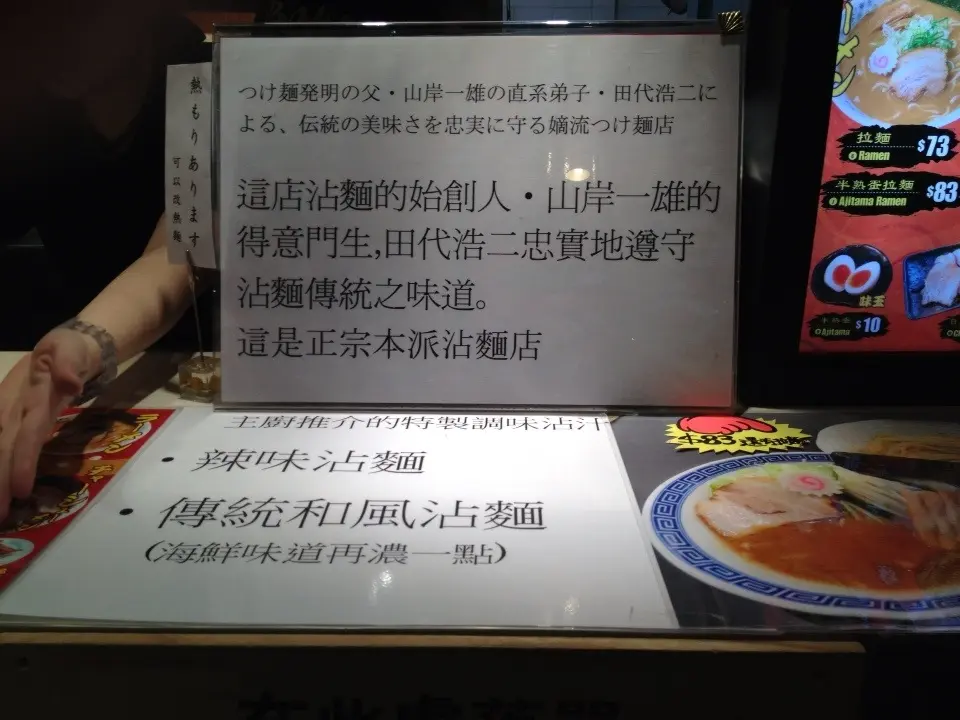 熱もりあります
可以改熱麵
つけ麺発明の父・山岸一雄の直系弟子・田代浩二に
よる、伝統の美味さを忠実に守る嫡流つけ麺店
這店沾麵的始創人・山岸一雄的
得意門生,田代浩二忠實地遵守
沾麵傳統之味道。
這是正宗本派沾麵店
主廚推介的特製調味沾汁
• 辣味沾麵
• 傳統和風沾麵
(海鮮味道再濃一點)
拉麵
Ramen
$73
半熟蛋拉麵
Ajitama Ramen
$83
味玉
半熟蛋
Ajitama
$10
$83